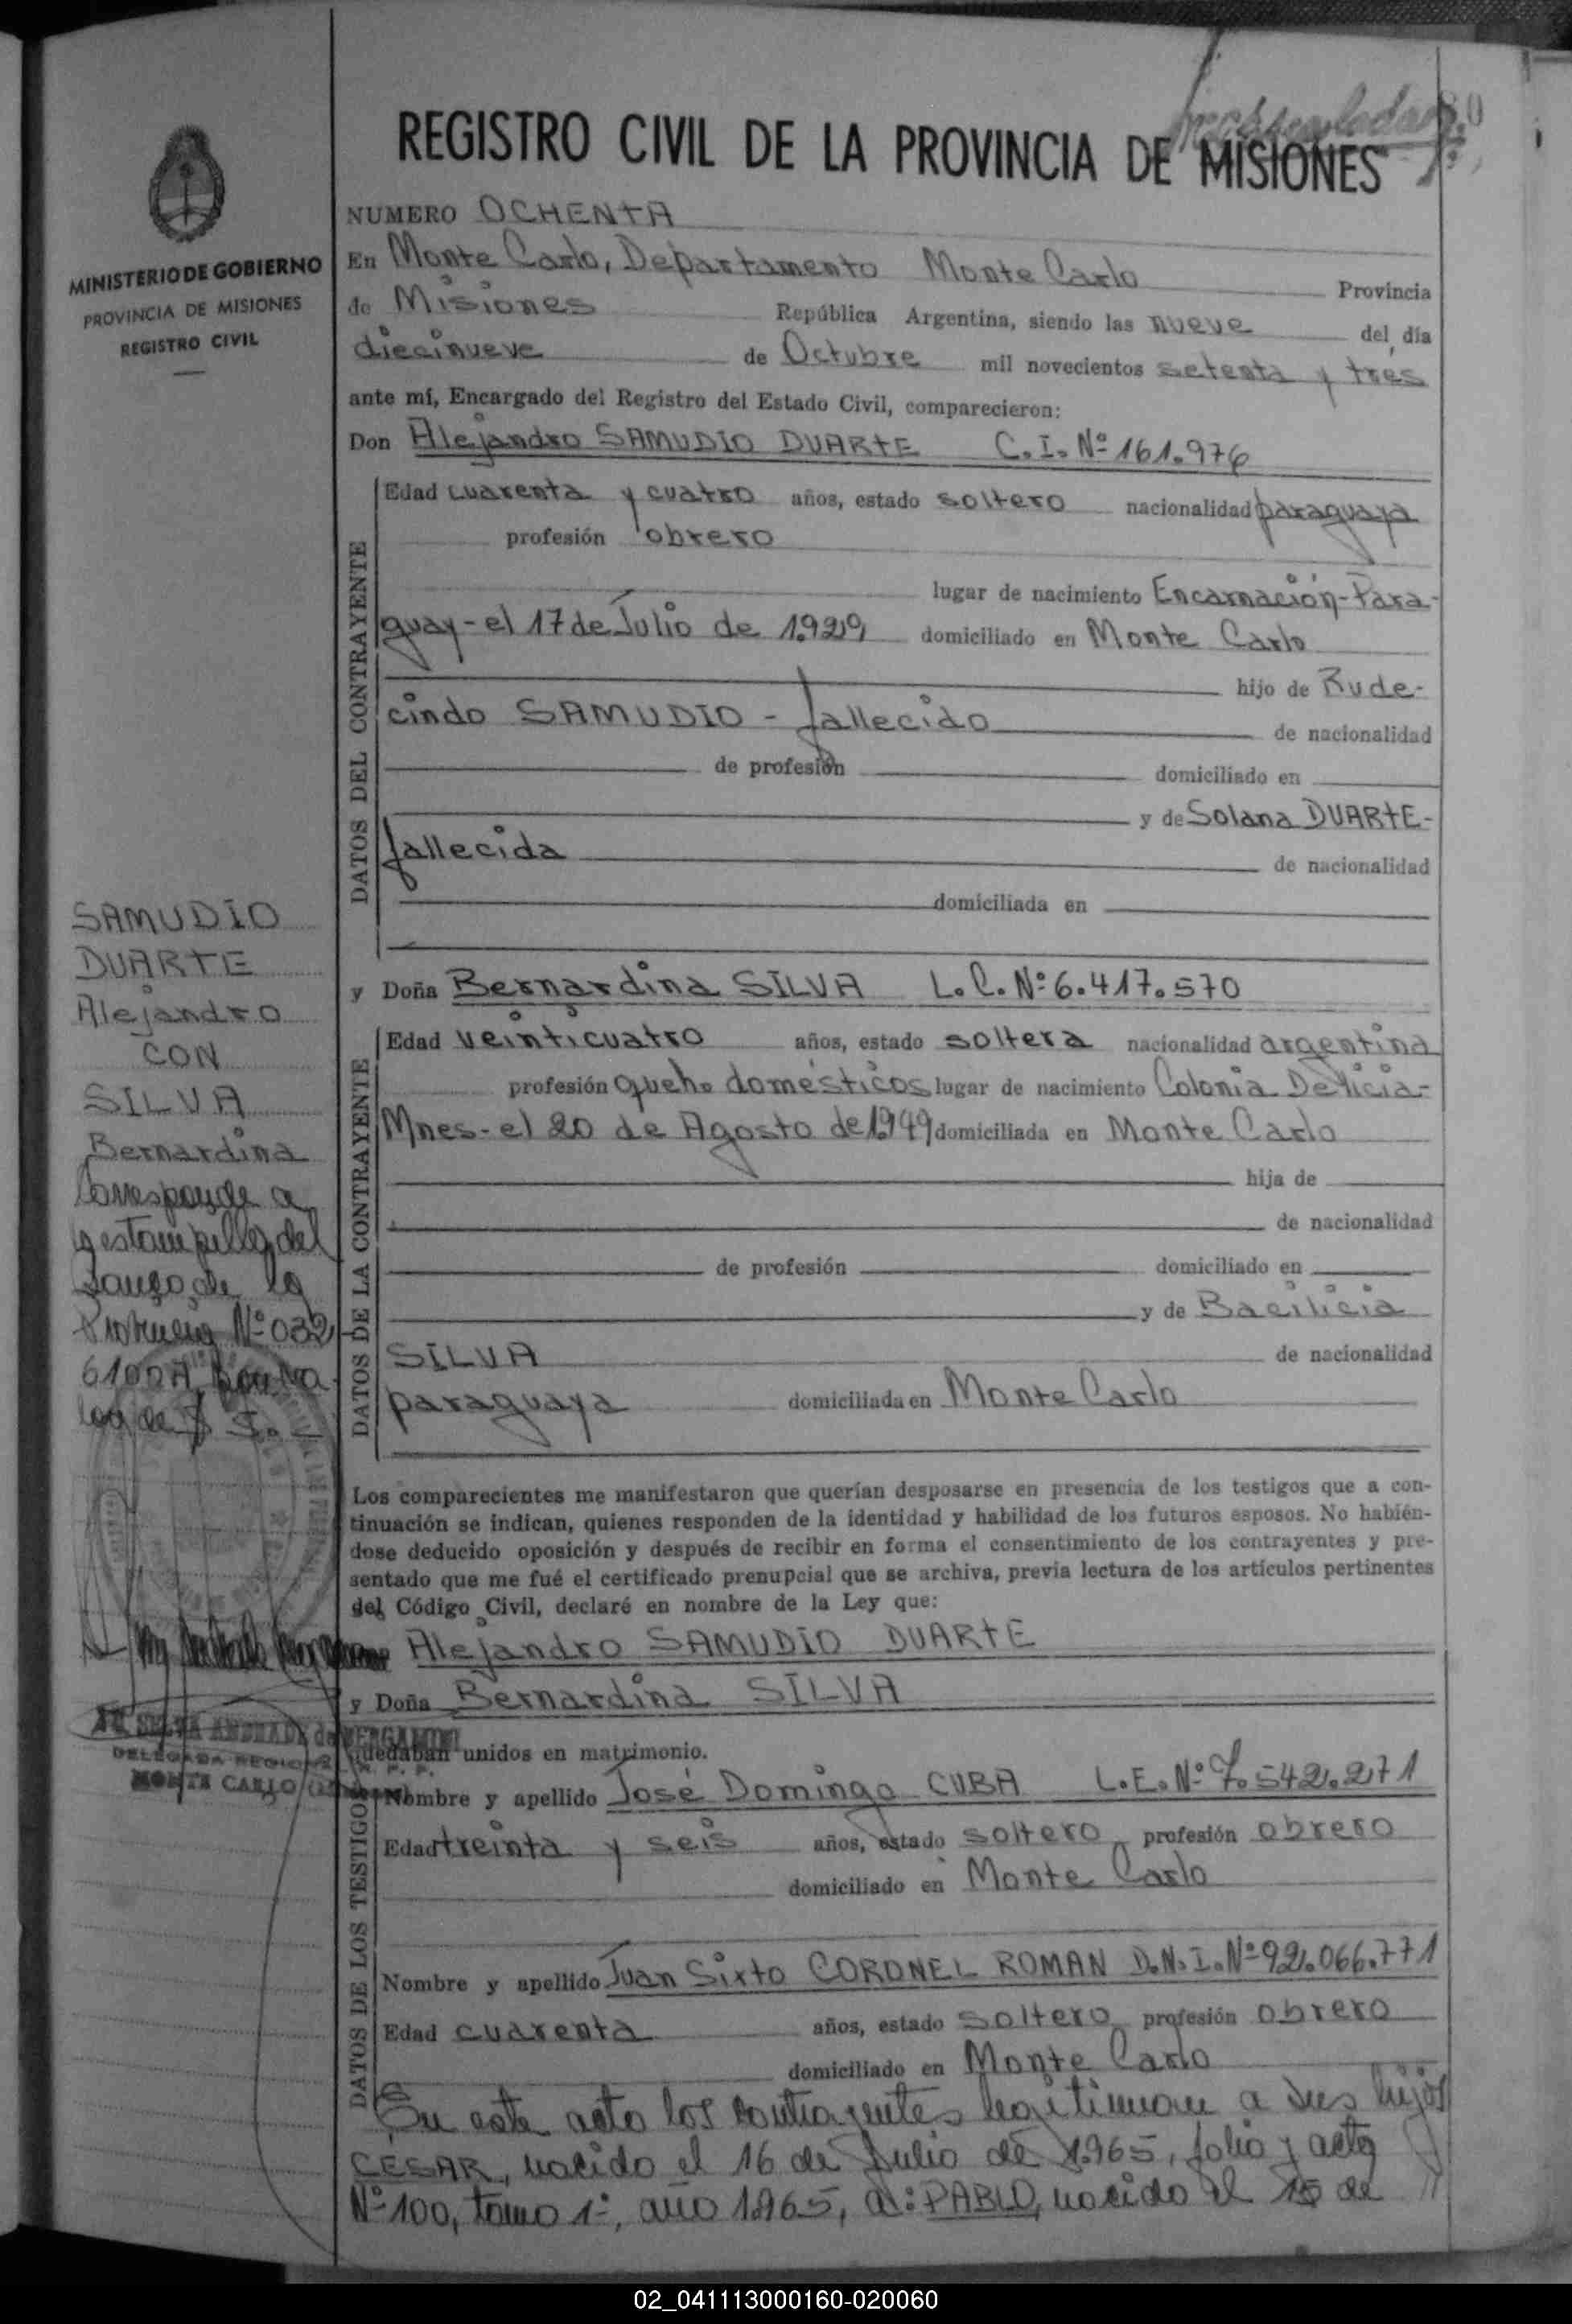 80
REGISTRO CIVIL DE LA PROVINCIA DE MISIONES
MINISTERIO DE GOBIERNO
PROVINCIA DE MISIONES
REGISTRO CIVIL
NUMERO OCHENTA
En Monte Carlo, Departamento Monte Carlo Provincia
de Misiones República Argentina, siendo las nueve del día
diecinueve de Octubre mil novecientos setenta y tres
ante mí, Encargado del Registro del Estado Civil, comparecieron:
Don Alejandro SAMUDIO DUARTE C.I. Nº 161.976
DATOS DEL CONTRAYENTE
Edad cuarenta y cuatro años, estado soltero nacionalidad paraguaya
profesión obrero
lugar de nacimiento Encarnación-Para-
guay-el 17 de Julio de 1.929 domiciliado en Monte Carlo
hijo de Rude-
cindo SAMUDIO - fallecido de nacionalidad
de profesión domiciliado en
y de Solana DUARTE-
fallecida de nacionalidad
domiciliada en
SAMUDIO
DUARTE
Alejandro
CON
SILVA
Bernardina
Corresponde a
estampilla del
Banco de la
Provincia Nº 032
y Doña Bernardina SILVA L.C. Nº 6.417.570
DATOS DE LA CONTRAYENTE
Edad veinticuatro años, estado soltera nacionalidad argentina
profesión queh. domésticos lugar de nacimiento Colonia Delicia-
Mnes-el 20 de Agosto de 1.949 domiciliada en Monte Carlo
hija de
de nacionalidad
de profesión domiciliado en
y de Bacilicia
SILVA de nacionalidad
paraguaya domiciliada en Monte Carlo
Los comparecientes me manifestaron que querían desposarse en presencia de los testigos que a con-
tinuación se indican, quienes responden de la identidad y habilidad de los futuros esposos. No habién-
dose deducido oposición y después de recibir en forma el consentimiento de los contrayentes y pre-
sentado que me fué el certificado prenupcial que se archiva, previa lectura de los artículos pertinentes
del Código Civil, declaré en nombre de la Ley que:
Alejandro SAMUDIO DUARTE
y Doña Bernardina SILVA
SELVA ANDRADE de BERGAMINI
DELEGADA
MONTE CARLO
quedaban unidos en matrimonio.
DATOS DE LOS TESTIGOS
Nombre y apellido José Domingo CUBA L.E. Nº 7.542.271
Edad treinta y seis años, estado soltero profesión obrero
domiciliado en Monte Carlo
Nombre y apellido Juan Sixto CORONEL ROMAN D.N.I. Nº 92.066.771
Edad cuarenta años, estado soltero profesión obrero
domiciliado en Monte Carlo
En este acto los contrayentes legitiman a sus hijos
CESAR, nacido el 16 de Julio de 1.965, folio y acta
Nº 100, tomo 1º, año 1965, a: PABLO, nacido el 15 de
02_041113000160-020060